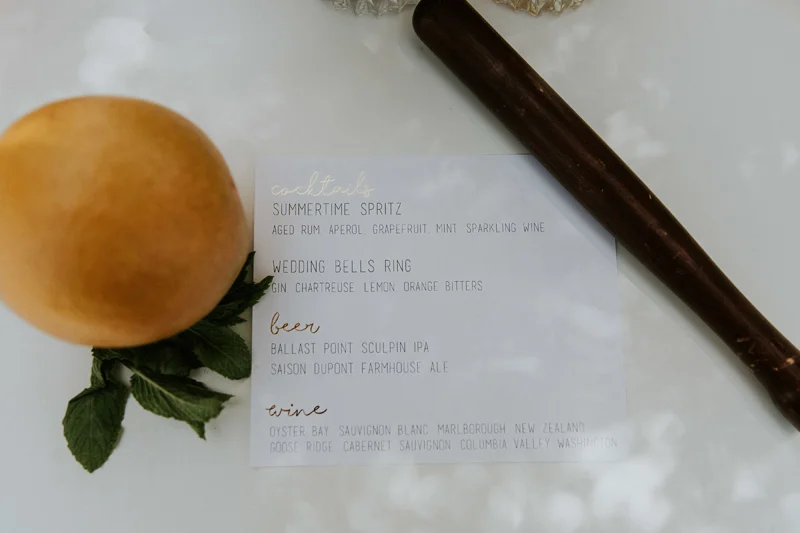 cocktails
SUMMERTIME SPRITZ
AGED RUM, APEROL, GRAPEFRUIT, MINT, SPARKLING WINE
WEDDING BELLS RING
GIN, CHARTREUSE, LEMON, ORANGE BITTERS
beer
BALLAST POINT SCULPIN IPA
SAISON DUPONT FARMHOUSE ALE
wine
OYSTER BAY, SAUVIGNON BLANC, MARLBOROUGH, NEW ZEALAND
GOOSE RIDGE, CABERNET SAUVIGNON, COLUMBIA VALLEY, WASHINGTON